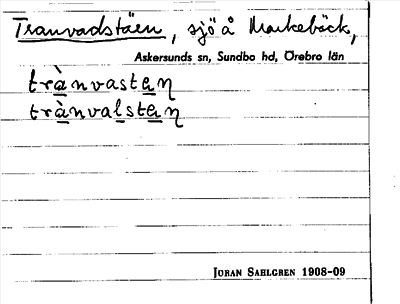 Tranvadstäen, sjö å Markebäck,
Askersunds sn, Sundbo hd, Örebro län
trànvastaŋ
trànvalstaŋ
JÖRAN SAHLGREN 1908-09